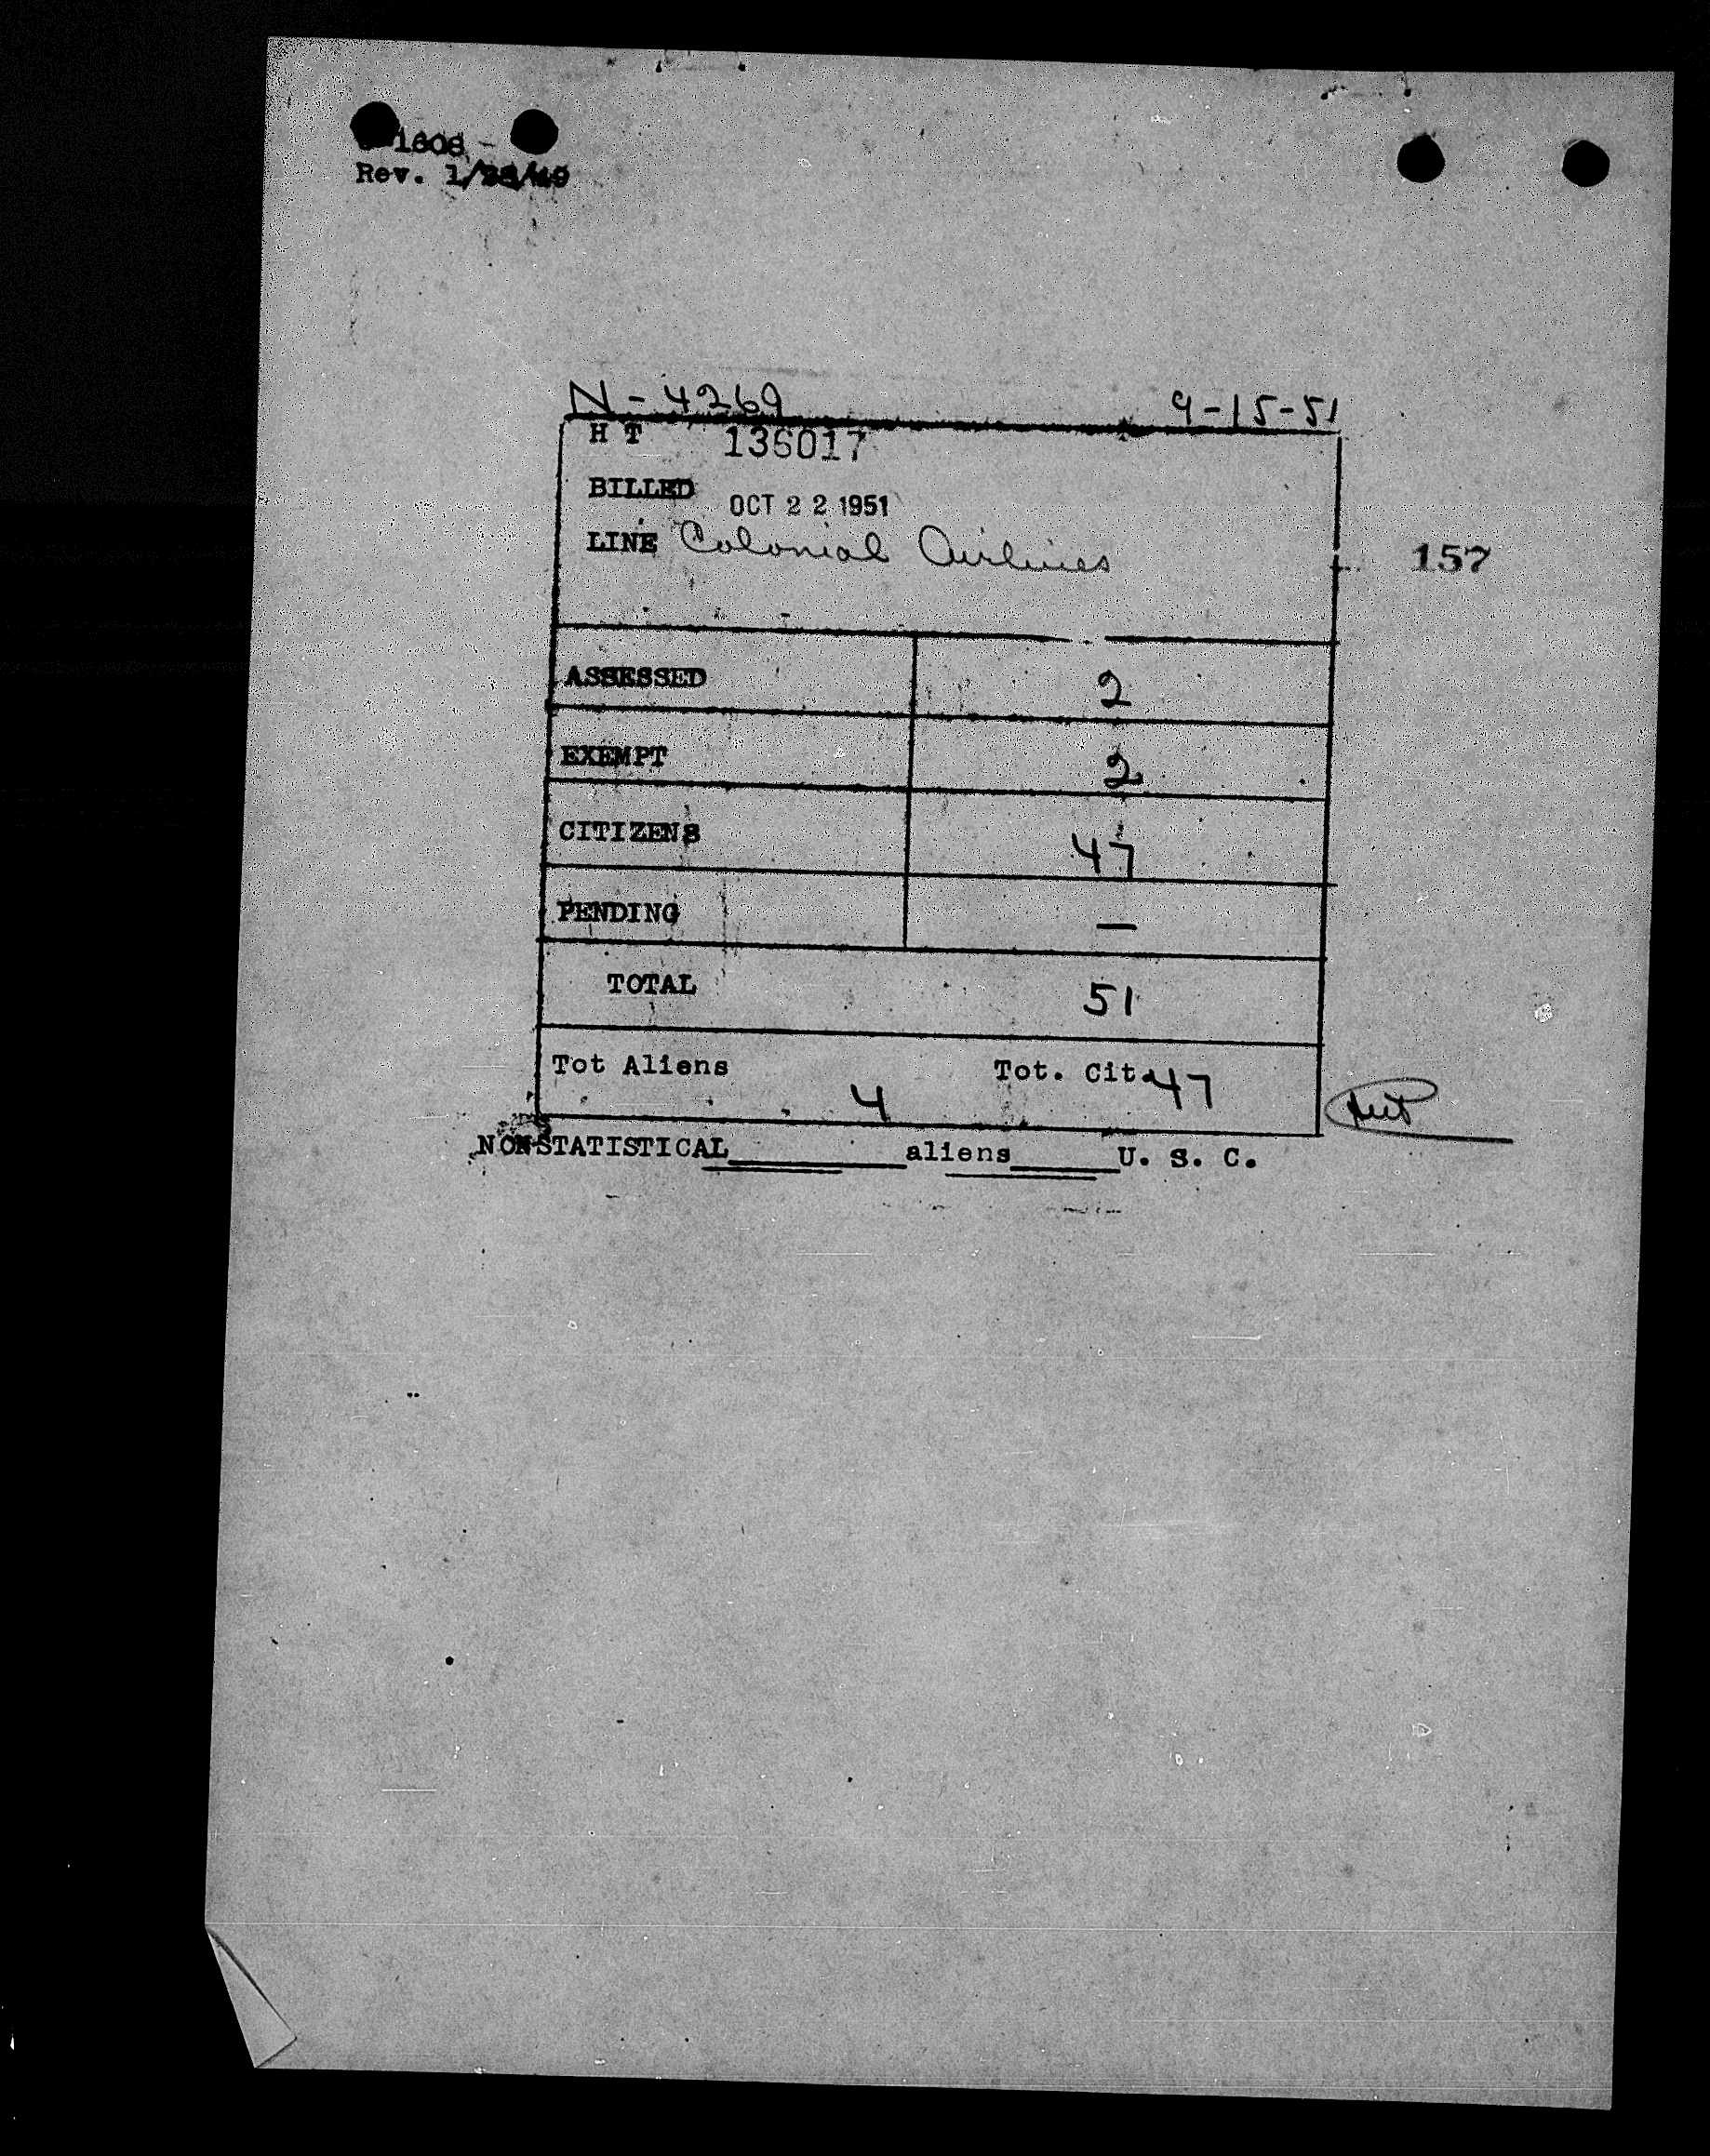 1608 -
Rev. 1/28/49
N-4269 9-15-51
H T 136017
BILLED OCT 22 1951
LINE Colonial Airlines
157
ASSESSED 2
EXEMPT 2
CITIZENS 47
PENDING —
TOTAL 51
Tot Aliens 4 Tot. Cit. 47
NONSTATISTICAL________aliens_____U. S. C.